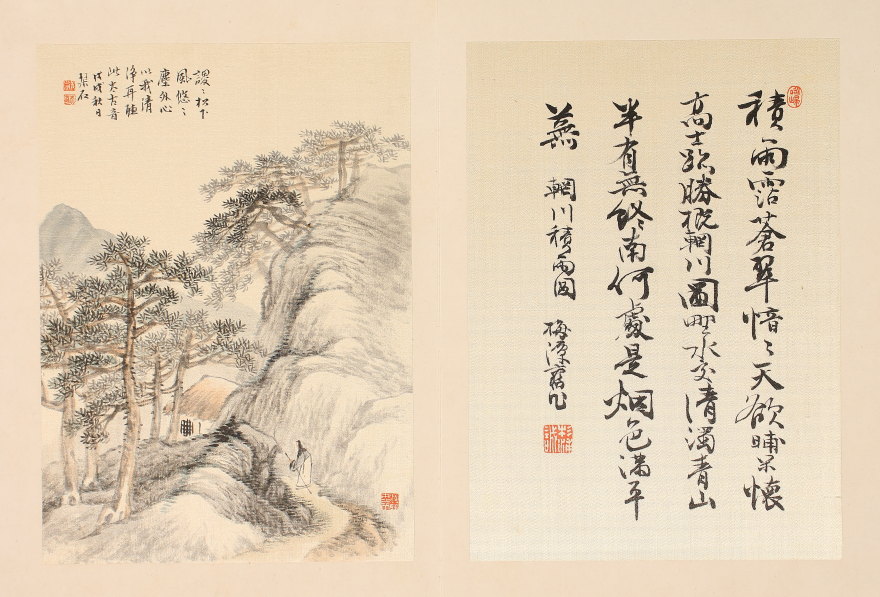 積雨霑蒼翠愔〻天欲晡懷
高士跡勝概輞川圖野水交清濁青山
半有無終南何處是烟色滿平
蕪 輞川積雨圖 梅潭舊作
謖〻松下
風悠〻
塵外心
以我清
淨耳聽
此太古音
戊戌秋日
琴石